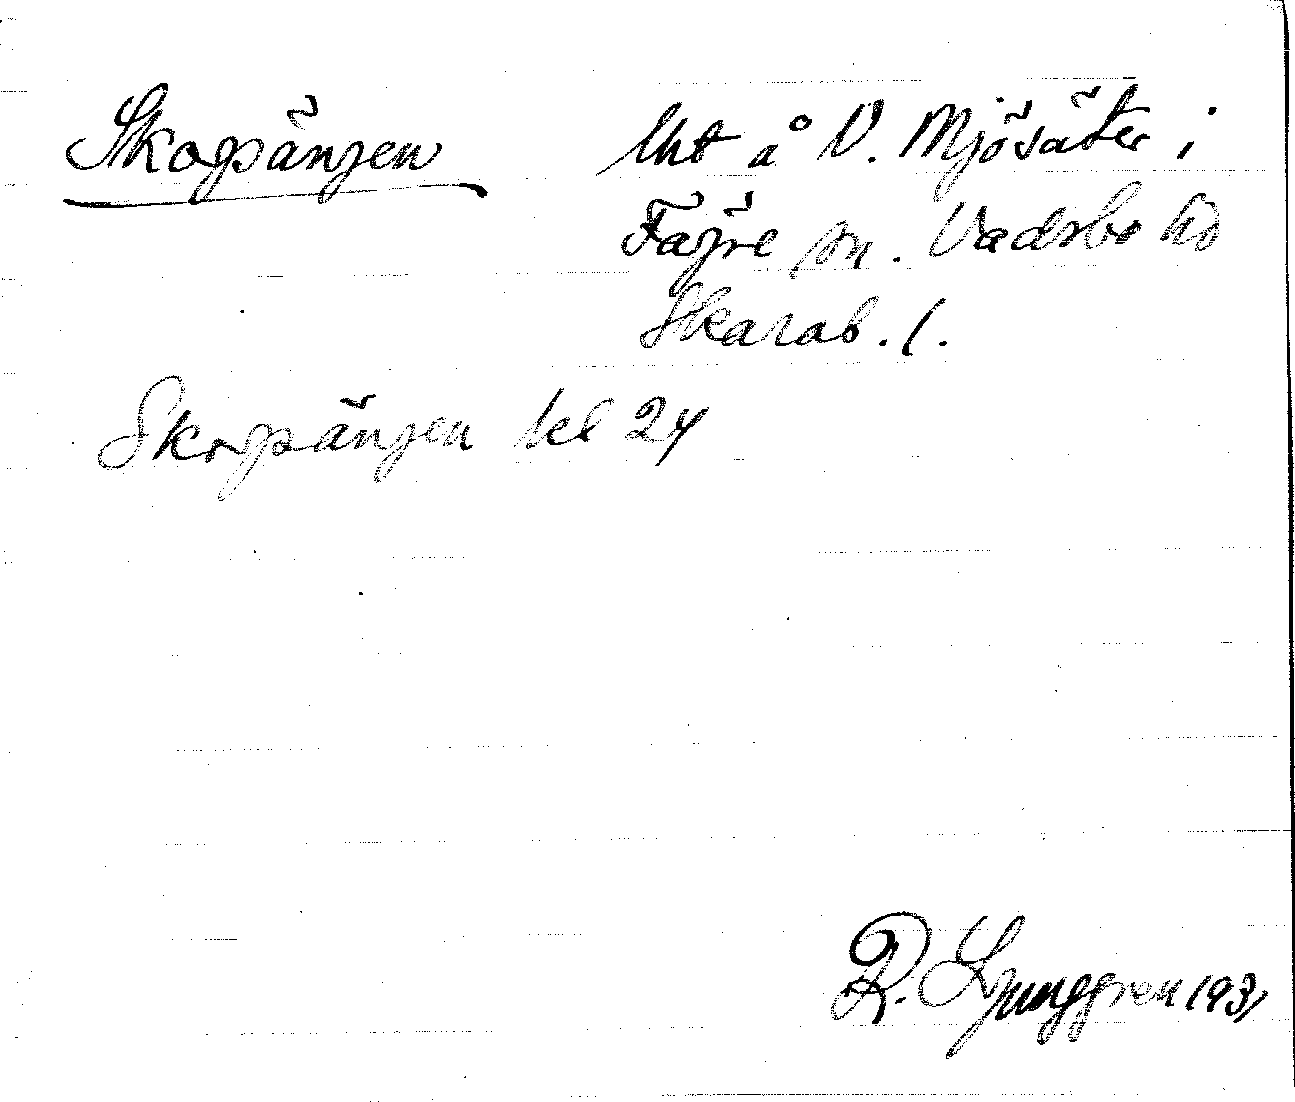 Skogsängen
Uht å V. Mjösäter i
Fägre sn. Vadsbo hd
Skarab. l.
Skogsängen kl 24
R. Ljunggren 1931